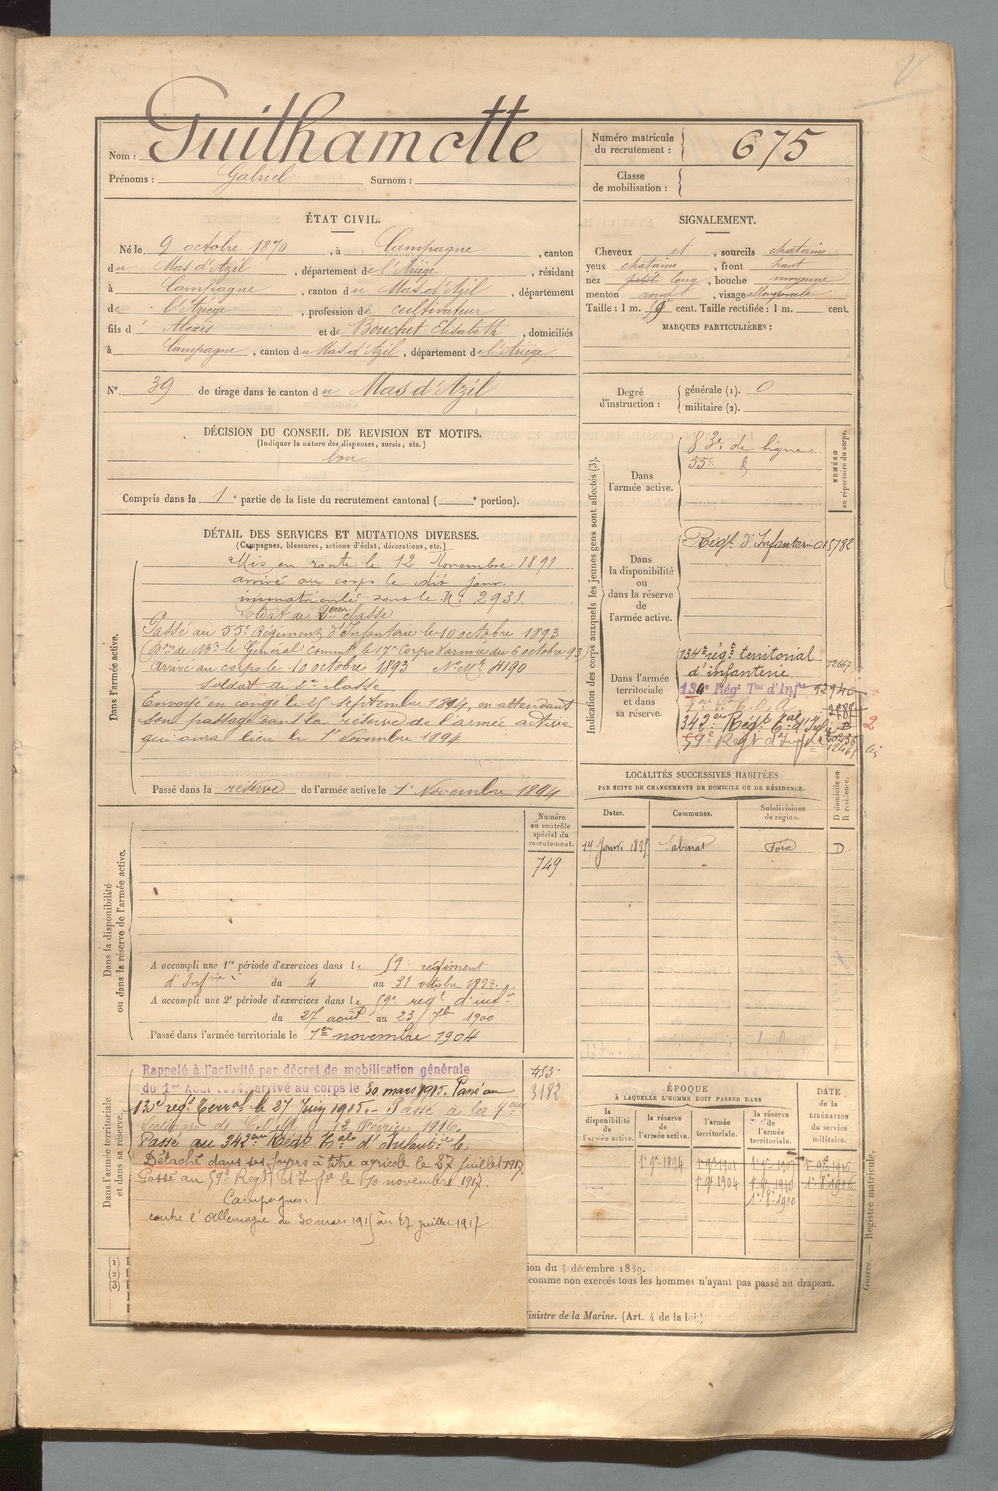 Nom : Guilhamotte
Prénoms : Gabriel Surnom :
Numéro matricule du recrutement : 675
Classe de mobilisation :
ÉTAT CIVIL.
Né le 9 octobre 1870, à Campagne, canton
du Mas d'Azil, département de l'Ariège, résidant
à Campagne, canton du Mas d'Azil, département
de l'Ariège, profession de cultivateur
fils d' Alexis et de Bouchet Elisabeth, domiciliés
à Campagne, canton du Mas d'Azil, département de l'Ariège
N° 39 de tirage dans le canton du Mas d'Azil
SIGNALEMENT.
Cheveux et, sourcils chatains
yeux chatains, front haut
nez petit long, bouche moyenne
menton rond, visage
Taille : 1 m. cent. Taille rectifiée : 1 m. cent.
MARQUES PARTICULIÈRES :
Degré d'instruction : générale (1). 0
militaire (2).
DÉCISION DU CONSEIL DE REVISION ET MOTIFS.
(Indiquer la nature des dispenses, sursis, etc.)
bon
Compris dans la 1e partie de la liste du recrutement cantonal ( e portion).
DÉTAIL DES SERVICES ET MUTATIONS DIVERSES.
(Campagnes, blessures, actions d'éclat, décorations, etc.)
Dans l'armée active.
Mis en route le 12 Novembre 1891
arrivé au corps le dit jour
immatriculé sous le N° 2931.
Soldat de 2ème classe
Passé au 55e Régiment d'Infanterie le 10 octobre 1893
de Mr le Général commt le 17e Corps d'armée du 6 octobre 93)
arrivé au corps le 10 octobre 1893 N° Mle 4190
Soldat de classe
Envoyé en congé le septembre 1894, en attendant
son passage dans la réserve de l'armée active
qui aura lieu le 1er Novembre 1894
Passé dans la réserve de l'armée active le 1er Novembre 1894
Indication des corps auxquels les jeunes gens sont affectés (3).
NUMÉRO au répertoire du corps.
Dans l'armée active.
83e de ligne
55e
Dans la disponibilité ou dans la réserve de l'armée active.
Régt d'Infanterie 015782
Dans l'armée territoriale et dans sa réserve.
134e régt territorial
d'infanterie
Régt Tal d'Infie
342e Régt Tal d'Inf
59e Régt d'Infie
LOCALITÉS SUCCESSIVES HABITÉES
PAR SUITE DE CHANGEMENTS DE DOMICILE OU DE RÉSIDENCE.
Dates. Communes. Subdivisions de région. D domicile ou R résidence.
Sabarat Foix D
Dans la disponibilité ou dans la réserve de l'armée active.
Numéro au contrôle spécial du recrutement.
749
A accompli une 1re période d'exercices dans le 59e régiment
d'Infie du 4 au 31 octobre 1897.
A accompli une 2e période d'exercices dans le 59e régt d'infie
du 27 août au 23 7bre 1900
Passé dans l'armée territoriale le 1er novembre 1904
Dans l'armée territoriale et dans sa réserve.
453
3182
Rappelé à l'activité par décret de mobilisation générale
du 1er Août 1914, arrivé au corps le 30 mars 1915. Passé au
régt Terral le 27 Juin 1915. Passé à la
Section de C.O.A. le 12 Février 1916.
Passé au 342e Régt Tal d'Infanterie le
Détaché dans ses foyers à titre agricole le 27 juillet 1917
Passé au 59e Régt d'Infie le novembre 1917.
Campagnes:
contre l'Allemagne du 30 mars 1915 au 27 juillet 1917
ÉPOQUE
À LAQUELLE L'HOMME DOIT PASSER DANS
la disponibilité de l'armée active. la réserve de l'armée active. l'armée territoriale. la réserve de l'armée territoriale.
DATE de la LIBÉRATION du service militaire.
(1)
(2)
(3)
ion du 4 décembre 1889.
comme non exercés tous les hommes n'ayant pas passé au drapeau.
Ministre de la Marine. (Art. 4 de la loi)
Guerre. — Registre matricule.